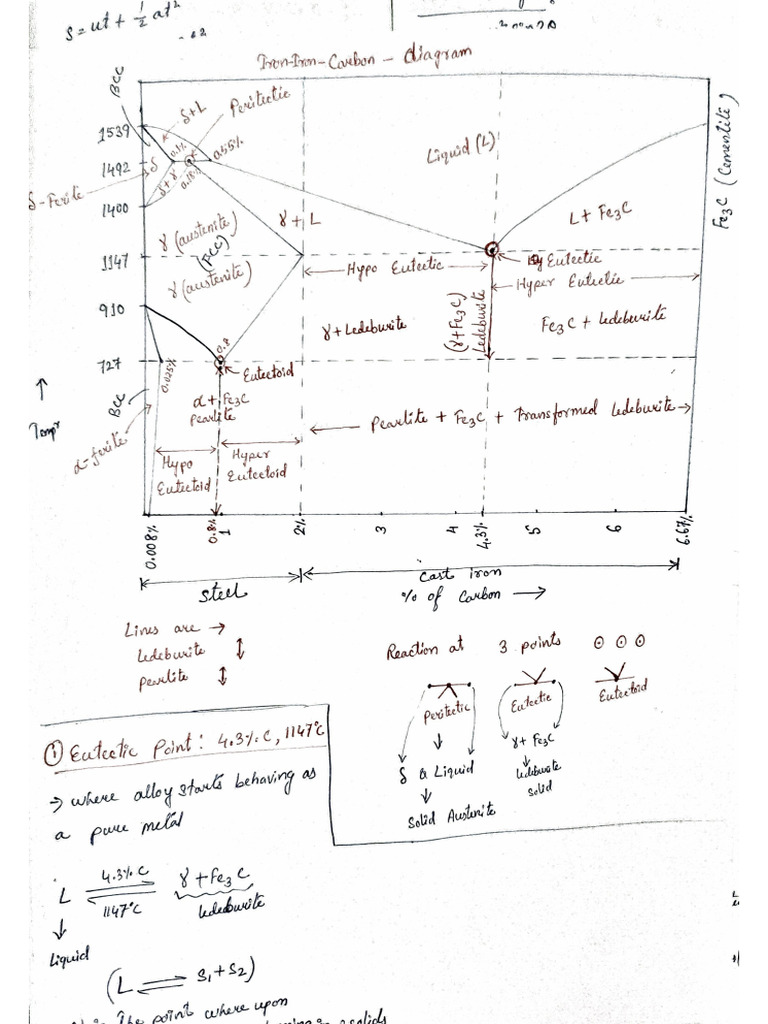 S = ut + 1/2 at²
Iron-Iron-Carbon - Diagram
BCC
δ+L
Peritectic
1539
1492
1400
1147
910
727
δ
δ+γ
0.1%
0.18%
0.55%
δ-Ferite
Liquid (L)
Fe3C (Cementite)
γ (austenite)
(FCC)
γ (austenite)
γ+L
L + Fe3C
Hypo Eutectic
Eutectic
Hyper Eutectic
γ+Ledeburite
(γ+Fe3C)
Ledeburite
Fe3C + Ledeburite
0.8
Eutectoid
0.025%
BCC
α-ferite
↑
Tempr
α+Fe3C
Pearlite
Pearlite + Fe3C + Transformed Ledeburite
Hypo
Eutectoid
Hyper
Eutectoid
0.008% 0.8% 1 2% 3 4 4.3% 5 6 6.67%
Steel
Cast iron
% of Carbon →
Lines are →
Ledeburite ↕
Pearlite ↕
Reaction at 3 points ⊙ ⊙ ⊙
Peritectic
Eutectic
Eutectoid
↓
δ & Liquid
↓
Solid Austenite
γ+ Fe3C
↓
Ledeburite
Solid
① Eutectic Point: 4.3% C, 1147°C
→ where alloy starts behaving as
a pure metal
L ⇌ γ+Fe3C
4.3% C
1147°C
Ledeburite
↓
Liquid
(L ⇌ S1+S2)
The point where upon
solids